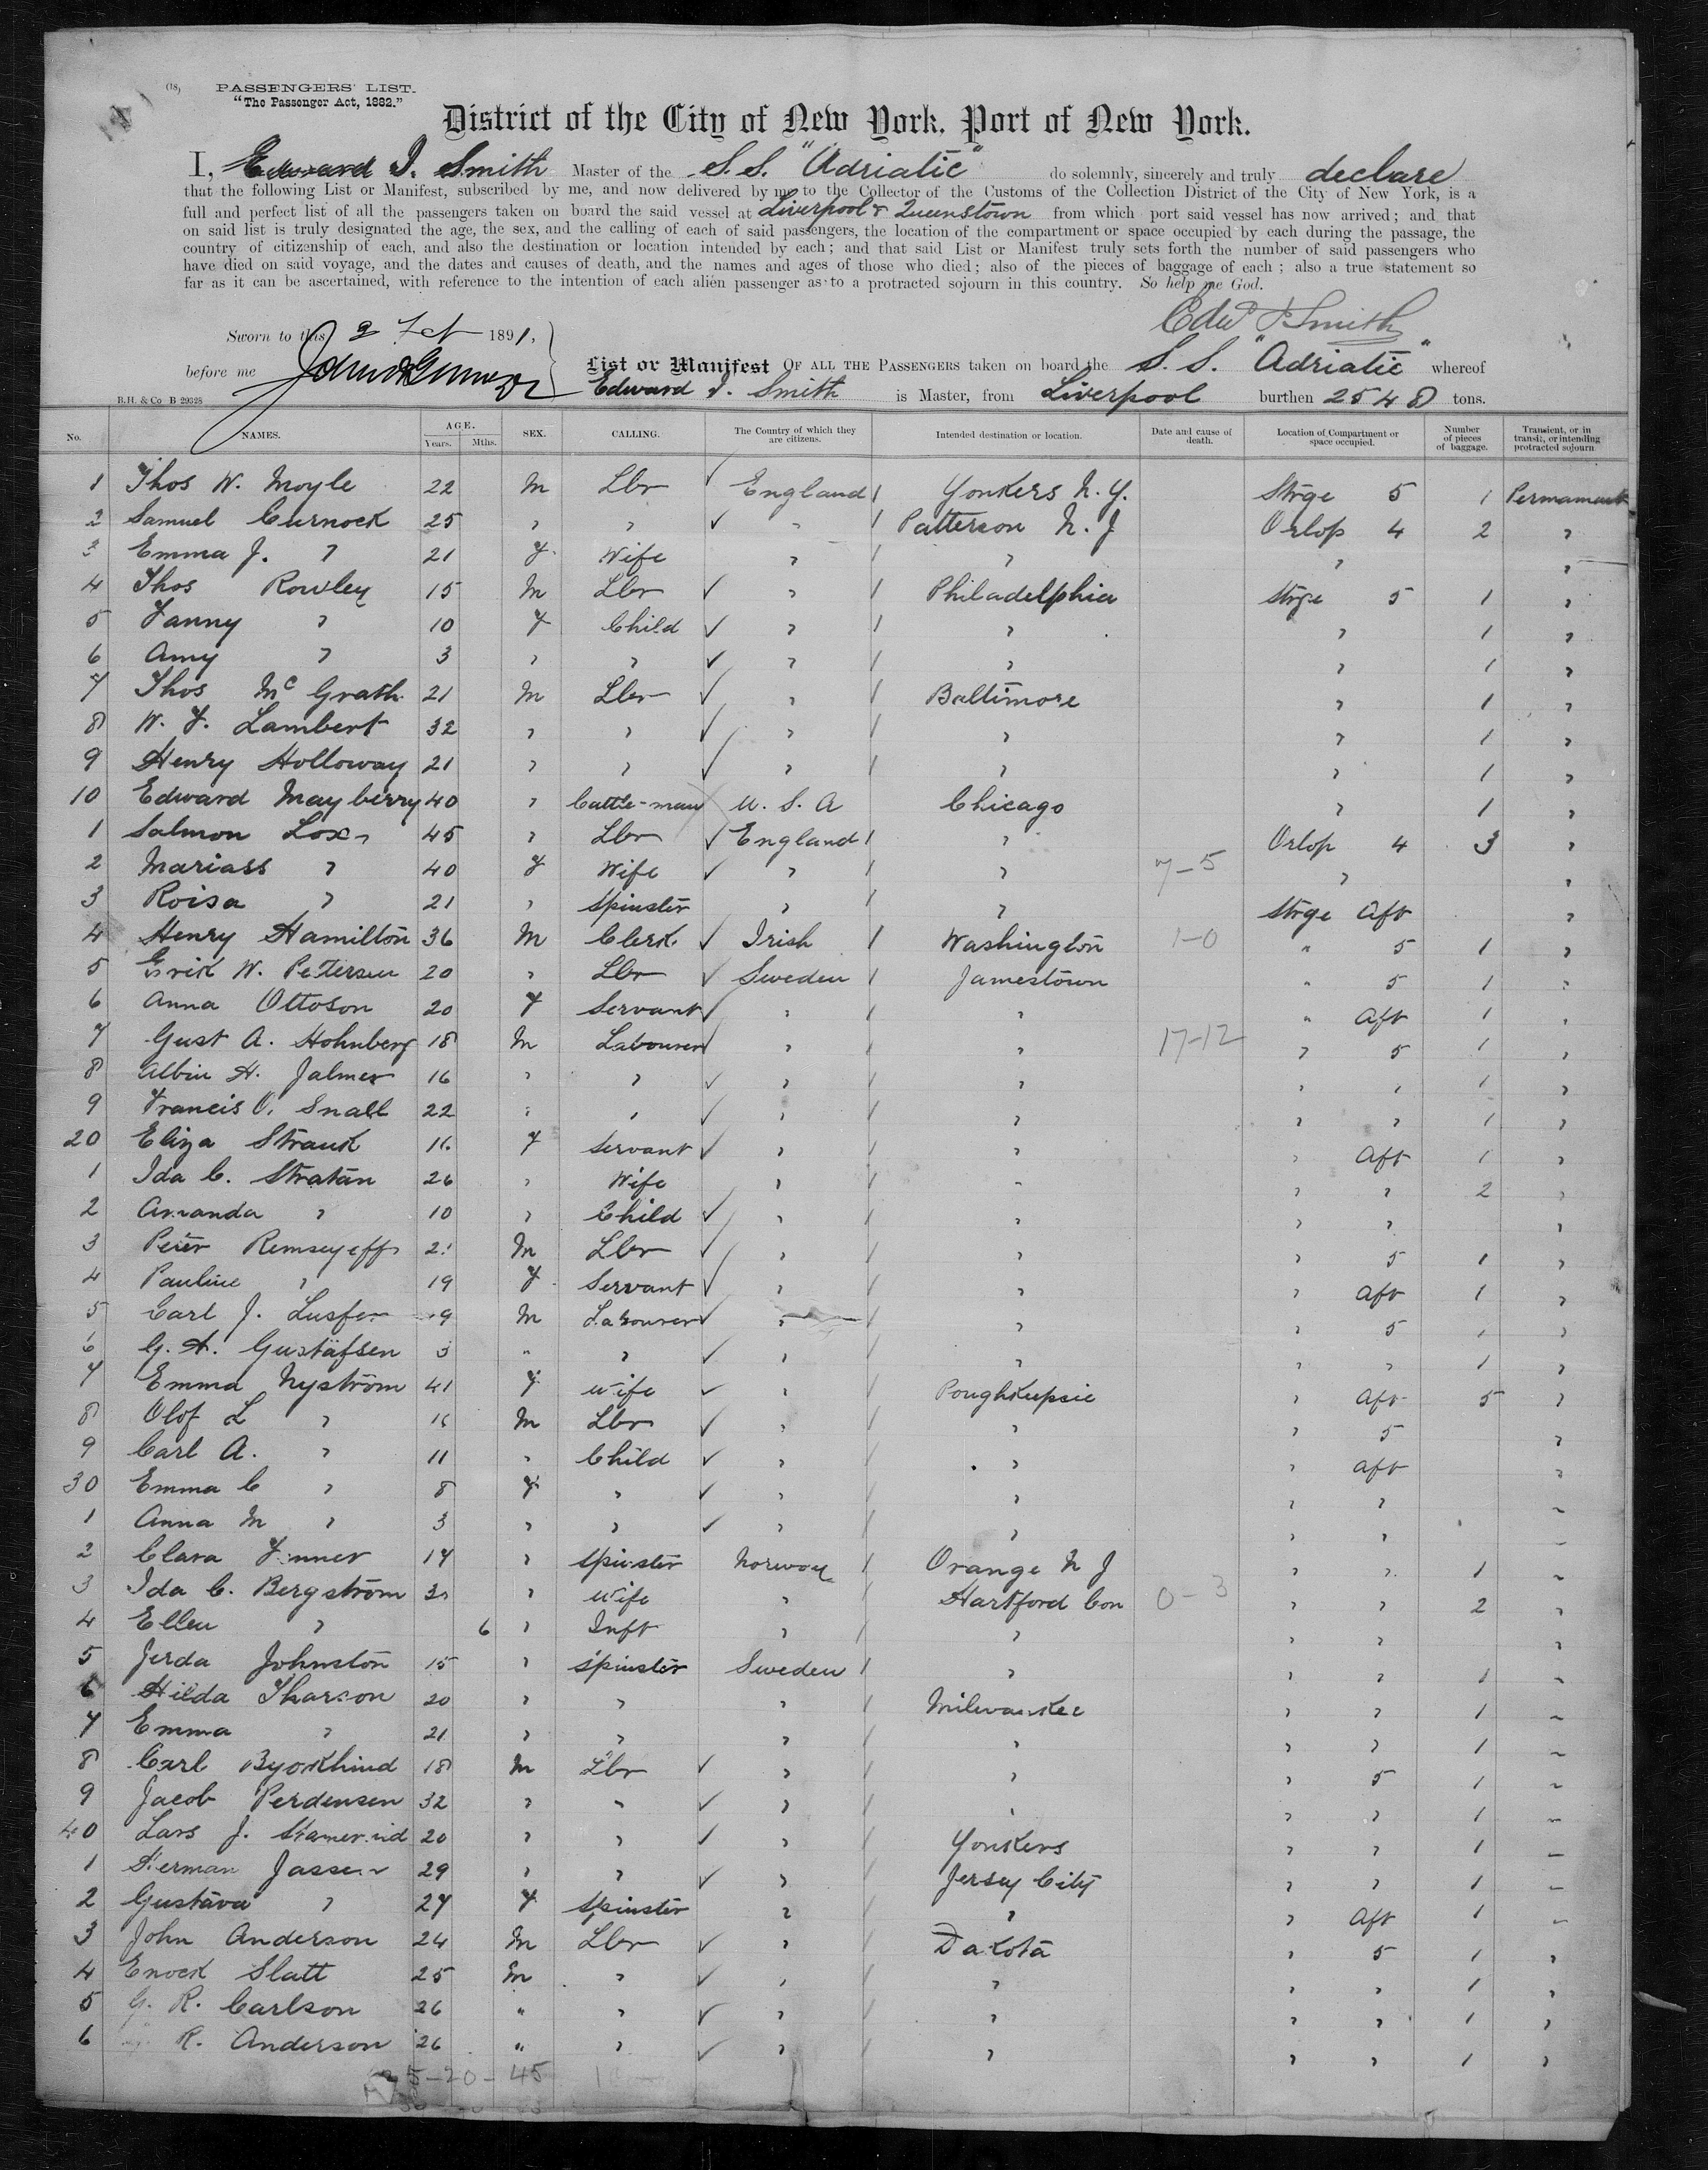 (18)
PASSENGERS' LIST.
"The Passenger Act, 1882."
District of the City of New York, Port of New York.
I, Edward J. Smith Master of the S.S. "Adriatic" do solemnly, sincerely and truly declare
that the following List or Manifest, subscribed by me, and now delivered by me to the Collector of the Customs of the Collection District of the City of New York, is a
full and perfect list of all the passengers taken on board the said vessel at Liverpool & Queenstown from which port said vessel has now arrived; and that
on said list is truly designated the age, the sex, and the calling of each of said passengers, the location of the compartment or space occupied by each during the passage, the
country of citizenship of each, and also the destination or location intended by each; and that said List or Manifest truly sets forth the number of said passengers who
have died on said voyage, and the dates and causes of death, and the names and ages of those who died; also of the pieces of baggage of each; also a true statement so
far as it can be ascertained, with reference to the intention of each alien passenger as to a protracted sojourn in this country. So help me God.
Edw J Smith
Sworn to this 2 Feb 1891,
before me
List or Manifest OF ALL THE PASSENGERS taken on board the S.S. "Adriatic" whereof
Edward J. Smith is Master, from Liverpool burthen 2548 tons.
B.H. & Co B 29328
No. NAMES. AGE. Years. Mths. SEX. CALLING. The Country of which they are citizens. Intended destination or location. Date and cause of death. Location of Compartment or space occupied. Number of pieces of baggage. Transient, or in transit, or intending protracted sojourn.
1 Thos W. Moyle 22 M Lbr ✓ England / Yonkers N.Y. Strge 5 1 Permament
2 Samuel Curnock 25 " " ✓ " / Patterson N.J Orlop 4 2 "
3 Emma J. " 21 F Wife " / " " "
4 Thos Rowley 15 M Lbr ✓ " / Philadelphia Strge 5 1 "
5 Fanny " 10 F Child ✓ " / " " 1 "
6 Amy " 3 " " ✓ " / " " 1 "
7 Thos McGrath 21 M Lbr ✓ " / Baltimore " 1 "
8 W. F. Lambert 32 " " ✓ " / " " 1 "
9 Henry Holloway 21 " " ✓ " / " " 1 "
10 Edward Mayberry 40 " Cattle-man U.S.A Chicago " 1 "
1 Salmon Lox 45 " Lbr ✓ England / " Orlop 4 3 "
2 Mariass " 40 F Wife ✓ " / " 7-5 " "
3 Roisa " 21 " Spinster " / " Strge Aft "
4 Henry Hamilton 36 M Clerk ✓ Irish / Washington 1-0 " 5 1 "
5 Erik W. Petersen 20 " Lbr ✓ Sweden / Jamestown " 5 1 "
6 Anna Ottoson 20 F Servant ✓ " / " " Aft 1 "
7 Gust A. Hohnberg 18 M Labourer ✓ " / " 17-12 " 5 1 "
8 Albin H. Jalmer 16 " " ✓ " / " " " 1 "
9 Francis O. Snall 22 " " ✓ " / " " " 1 "
20 Eliza Strauk F Servant ✓ " / " " Aft 1 "
1 Ida C. Stratan 26 " Wife " / " " " 2 "
2 Amanda " 10 " Child ✓ " / " " " "
3 Peter Remseyeff M Lbr ✓ " / " " 5 1 "
4 Pauline " 19 F Servant ✓ " / " " Aft 1 "
5 Carl J. M Labourer ✓ " / " " 5 1 "
6 G. A. Gustafsen " " ✓ " / " " " 1 "
7 Emma Nystrom 41 F Wife ✓ " / Poughkeepsie " Aft 5 "
8 Olof L " 16 M Lbr ✓ " / " " 5 "
9 Carl A. " 11 " Child ✓ " / " " Aft "
30 Emma C " 8 F " ✓ " / " " " "
1 Anna M " 3 " " ✓ " / " " " "
2 Clara 17 " Spinster Norway / Orange N J " " 1 "
3 Ida C. Bergstrom " Wife " / Hartford Con 0-3 " " 2 "
4 Ellen " 6 " Inft " / " " " "
5 Jerda Johnston 15 " Spinster Sweden / " " " 1 "
6 Hilda Tharson 20 " " " / Milwaukee " " 1 "
7 Emma " 21 " " " / " " " 1 "
8 Carl Byorkhind 18 M Lbr ✓ " / " " 5 1 "
9 Jacob Perdensen 32 " " ✓ " / " " " 1 "
40 Lars J. 20 " " ✓ " / Yonkers " " 1 "
1 Herman Jassen 29 " " ✓ " / Jersey City " " 1 "
2 Gustava " 27 F Spinster " / " " Aft 1 "
3 John Anderson 24 M Lbr ✓ " / Dakota " 5 1 "
4 Enock Slatt 25 M " ✓ " / " " " 1 "
5 G. R. Carlson 26 " " ✓ " / " " " 1 "
6 R. Anderson 26 " " ✓ " / " " " 1 "
25-20-45